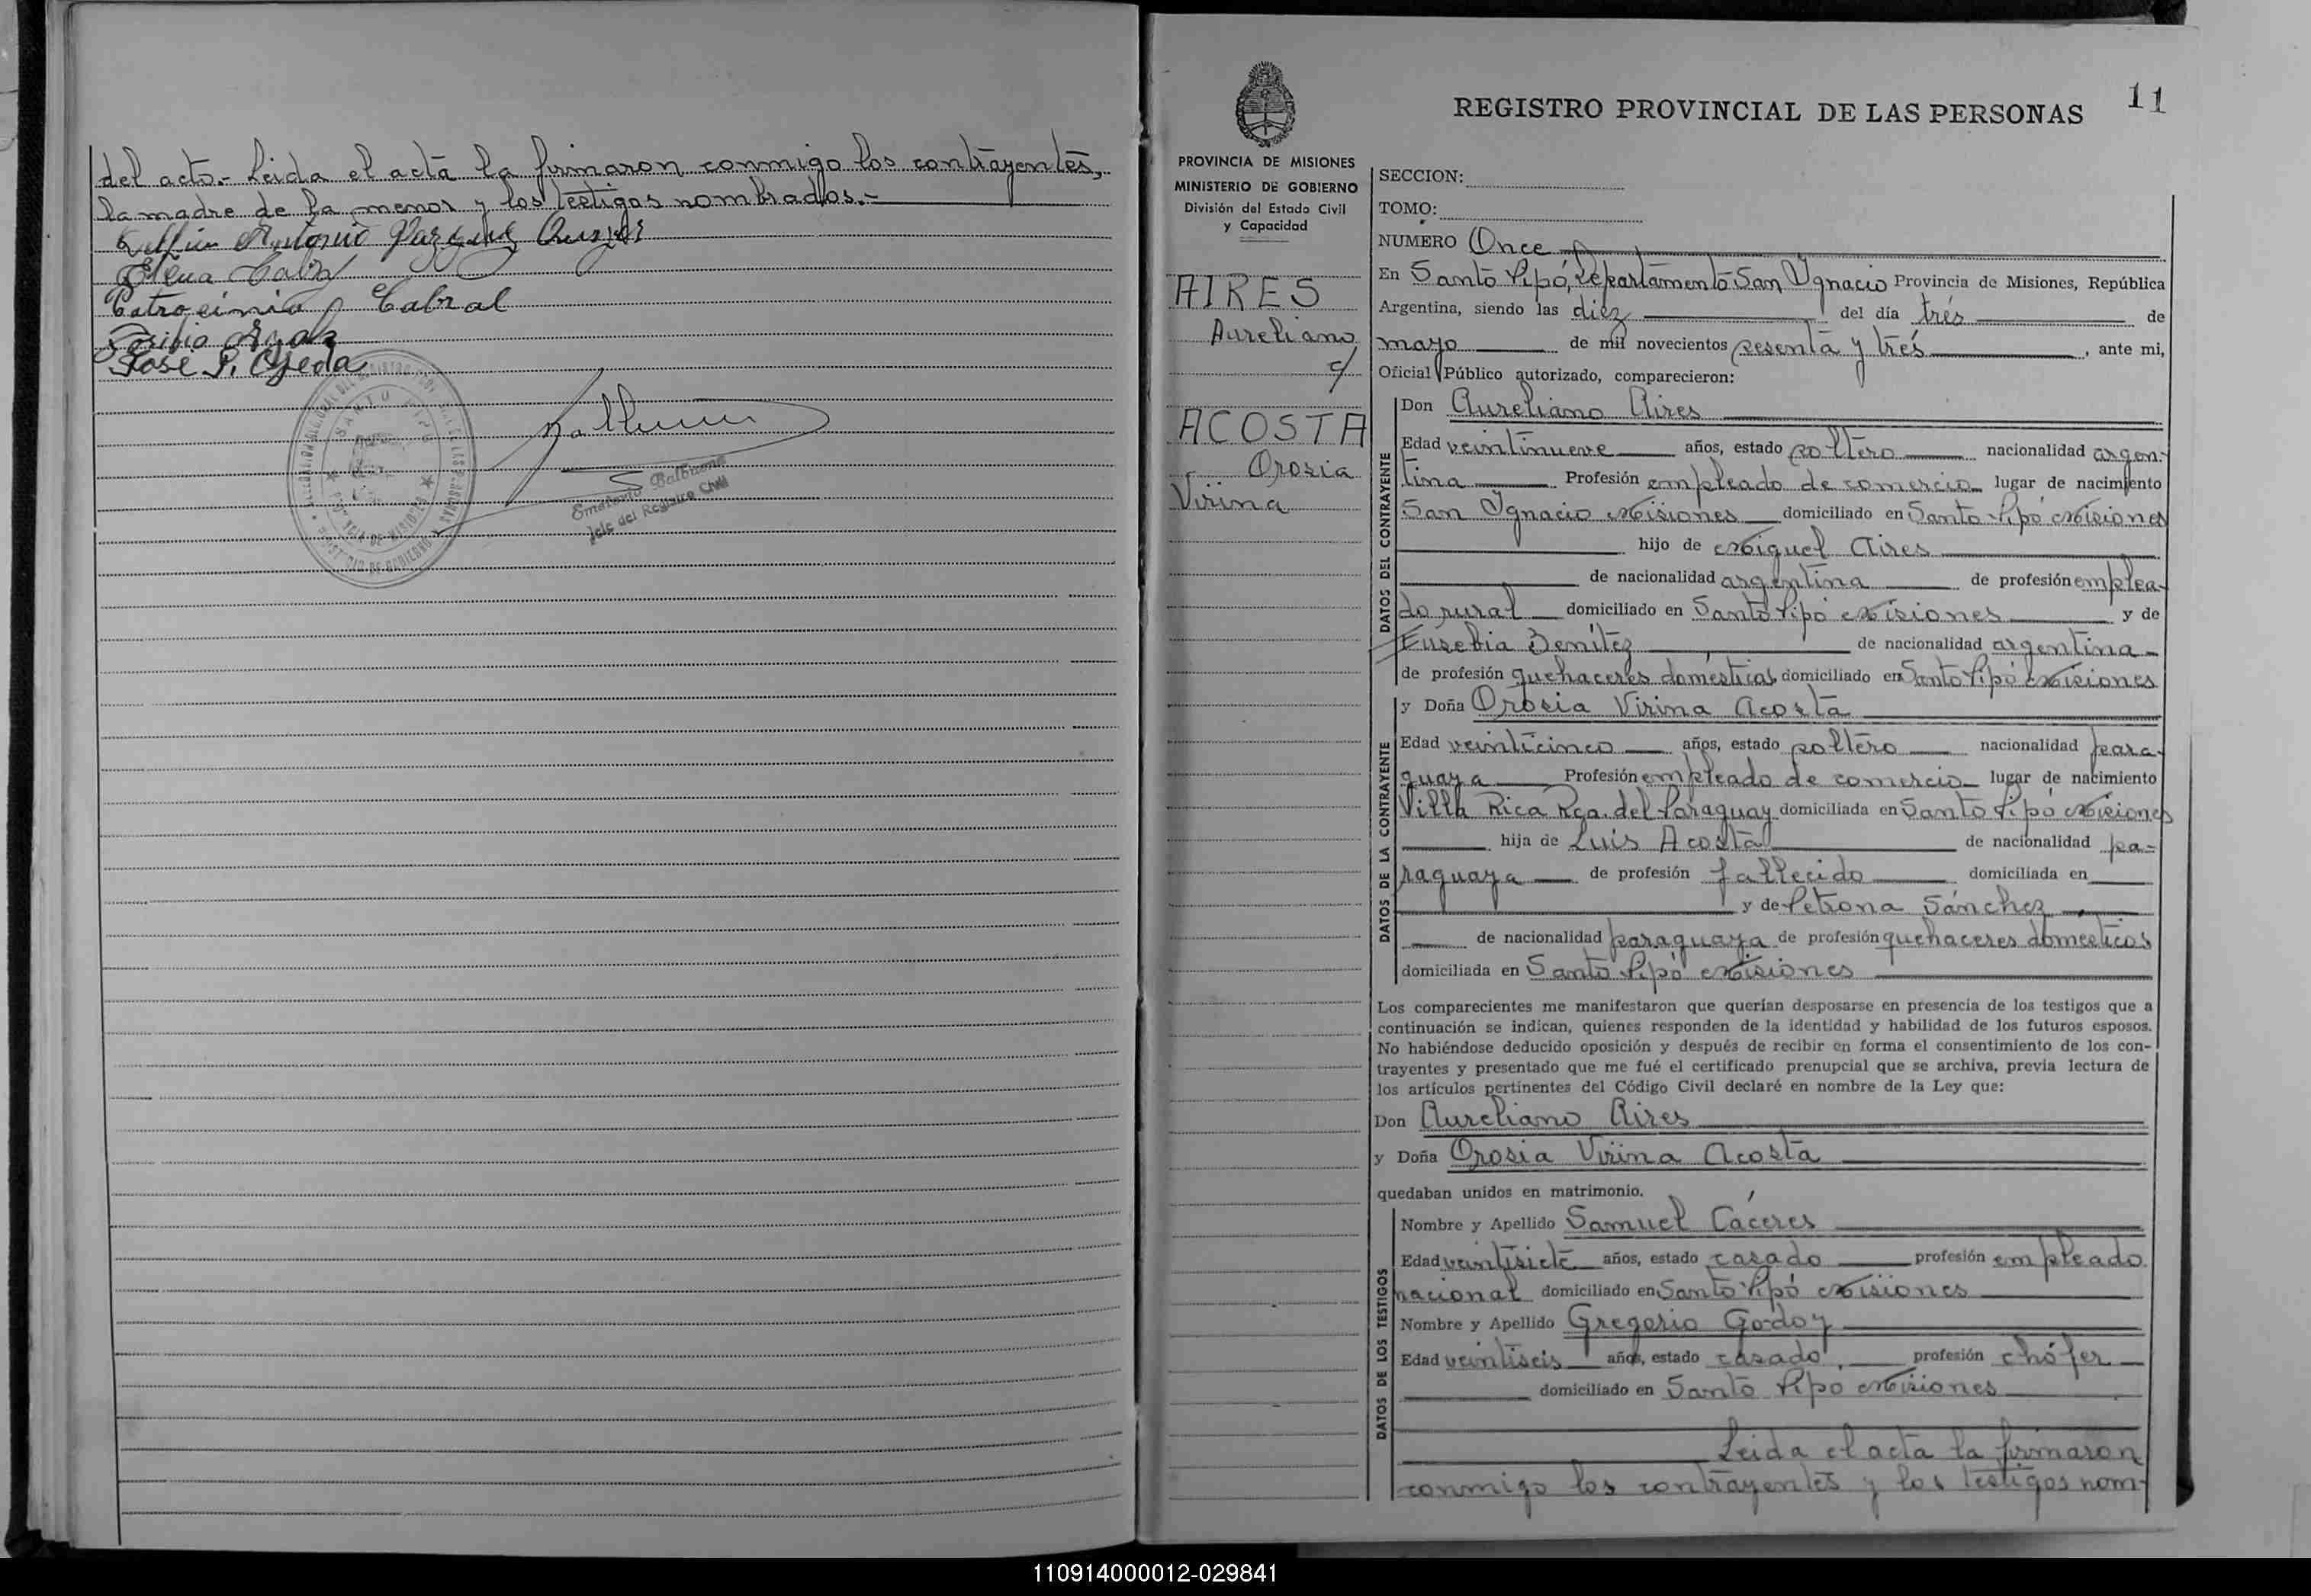 del acto.- Leida el acta la firmaron conmigo los contrayentes,
la madre de la menor y los testigos nombrados.-
Antonio
Elena
Patrocinia Cabral
José P. Ojeda
SANTO PIPÓ
Balbuena
Jefe del Registro Civil
11
REGISTRO PROVINCIAL DE LAS PERSONAS
PROVINCIA DE MISIONES
MINISTERIO DE GOBIERNO
División del Estado Civil
y Capacidad
AIRES
Aureliano
c/
ACOSTA
Orosia
Virina
SECCION:
TOMO:
NUMERO Once
En Santo Pipó, Departamento San Ignacio Provincia de Misiones, República
Argentina, siendo las diez del día trés de
mayo de mil novecientos sesenta y trés, ante mi,
Oficial Público autorizado, comparecieron:
DATOS DEL CONTRAYENTE
Don Aureliano Aires
Edad veintinueve años, estado soltero nacionalidad argen-
tina Profesión empleado de comercio lugar de nacimiento
San Ignacio Misiones domiciliado en Santo Pipó Misiones
hijo de Miguel Aires
de nacionalidad argentina de profesión emplea-
do rural domiciliado en Santo Pipó Misiones y de
Eusebia Benítez de nacionalidad argentina
de profesión quehaceres domésticos domiciliado en Santo Pipó Misiones
DATOS DE LA CONTRAYENTE
y Doña Orosia Virina Acosta
Edad veinticinco años, estado soltero nacionalidad para-
guaya Profesión empleado de comercio lugar de nacimiento
Villa Rica Rca. del Paraguay domiciliada en Santo Pipó Misiones
hija de Luis Acosta de nacionalidad pa-
raguaya de profesión fallecido domiciliada en
y de Petrona Sánchez
de nacionalidad paraguaya de profesión quehaceres domesticos
domiciliada en Santo Pipó Misiones
Los comparecientes me manifestaron que querían desposarse en presencia de los testigos que a
continuación se indican, quienes responden de la identidad y habilidad de los futuros esposos.
No habiéndose deducido oposición y después de recibir en forma el consentimiento de los con-
trayentes y presentado que me fué el certificado prenupcial que se archiva, previa lectura de
los artículos pertinentes del Código Civil declaré en nombre de la Ley que:
Don Aureliano Aires
y Doña Orosia Virina Acosta
quedaban unidos en matrimonio.
DATOS DE LOS TESTIGOS
Nombre y Apellido Samuel Cáceres
Edad veintisiete años, estado casado profesión empleado
nacional domiciliado en Santo Pipó Misiones
Nombre y Apellido Gregorio Godoy
Edad veintiseis años, estado casado profesión chófer
domiciliado en Santo Pipó Misiones
Leida el acta la firmaron
conmigo los contrayentes y los testigos nom-
110914000012-029841